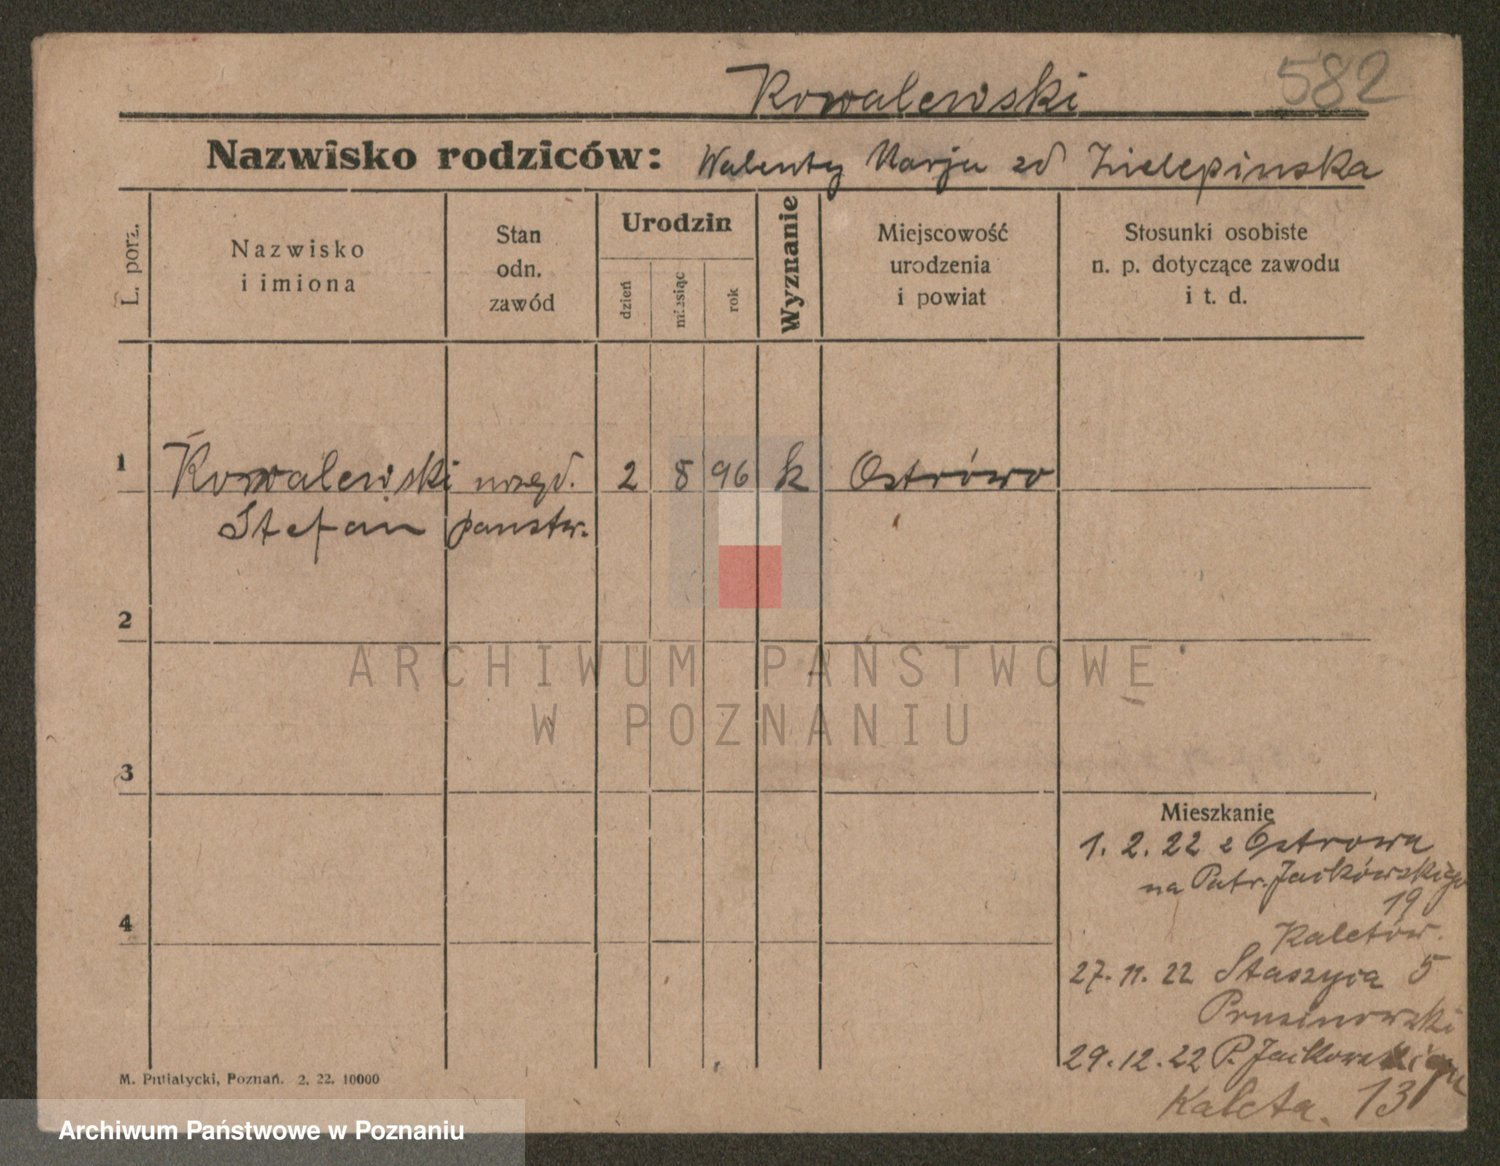 Kowalewski 582
Nazwisko rodziców: Walenty Marja zd Zielepinska
L. porz.
Nazwisko
i imiona
Stan
odn.
zawód
Urodzin
dzień
miesiąc
rok
Wyznanie
Miejscowość
urodzenia
i powiat
Stosunki osobiste
n. p. dotyczące zawodu
i t. d.
1 Kowalewski urzęd. 2 8 96 k Ostrówo
Stefan panstw.
2
ARCHIWUM PAŃSTWOWE
W POZNANIU
3
Mieszkanie
1. 2. 22 z Ostrowa
na Patr. Jackówskiego
19
4
Kaletow.
27. 11. 22 Staszyca 5
Prusinowski
29. 12. 22 P. Jackowskiego
Kaleta. 13
M. Putiatycki, Poznań. 2. 22. 10000
Archiwum Państwowe w Poznaniu